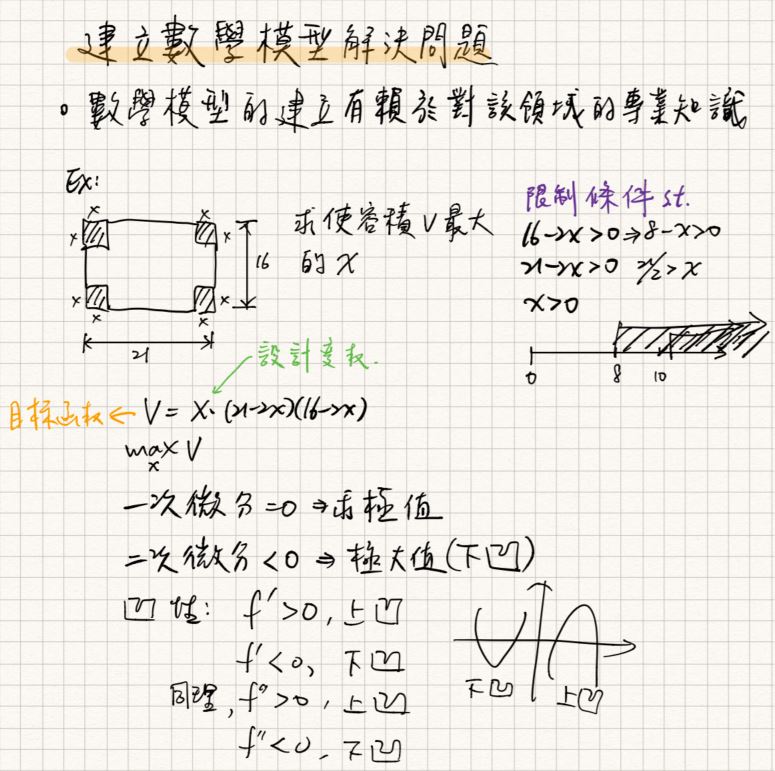 建立數學模型解決問題
。數學模型的建立有賴於對該領域的專業知識
Ex:
x x
x x
x x
x x
16
21
求使容積V最大
的x
限制條件 st.
16-2x>0⇒8-x>0
21-2x>0 21/2>x
x>0
0 8 10
設計變数.
目标函数 ← V = x·(21-2x)(16-2x)
max V
x
一次微分=0 ⇒求極值
二次微分<0 ⇒ 極大值(下凹)
凹性: f'>0, 上凹
f'<0, 下凹
同理, f">0, 上凹
f"<0, 下凹
下凹 上凹